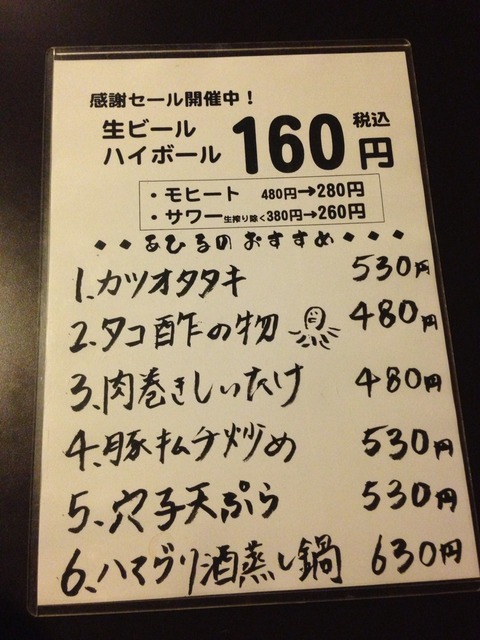 感謝セール開催中！
生ビール
ハイボール
160円 税込
・モヒート 480円→280円
・サワー生搾り除く380円→260円
◆◆あひるのおすすめ◆◆◆
1、カツオタタキ 530円
2、タコ酢の物 480円
3、肉巻きしいたけ 480円
4、豚キムチ炒め 530円
5、穴子天ぷら 530円
6、ハマグリ酒蒸し鍋 630円